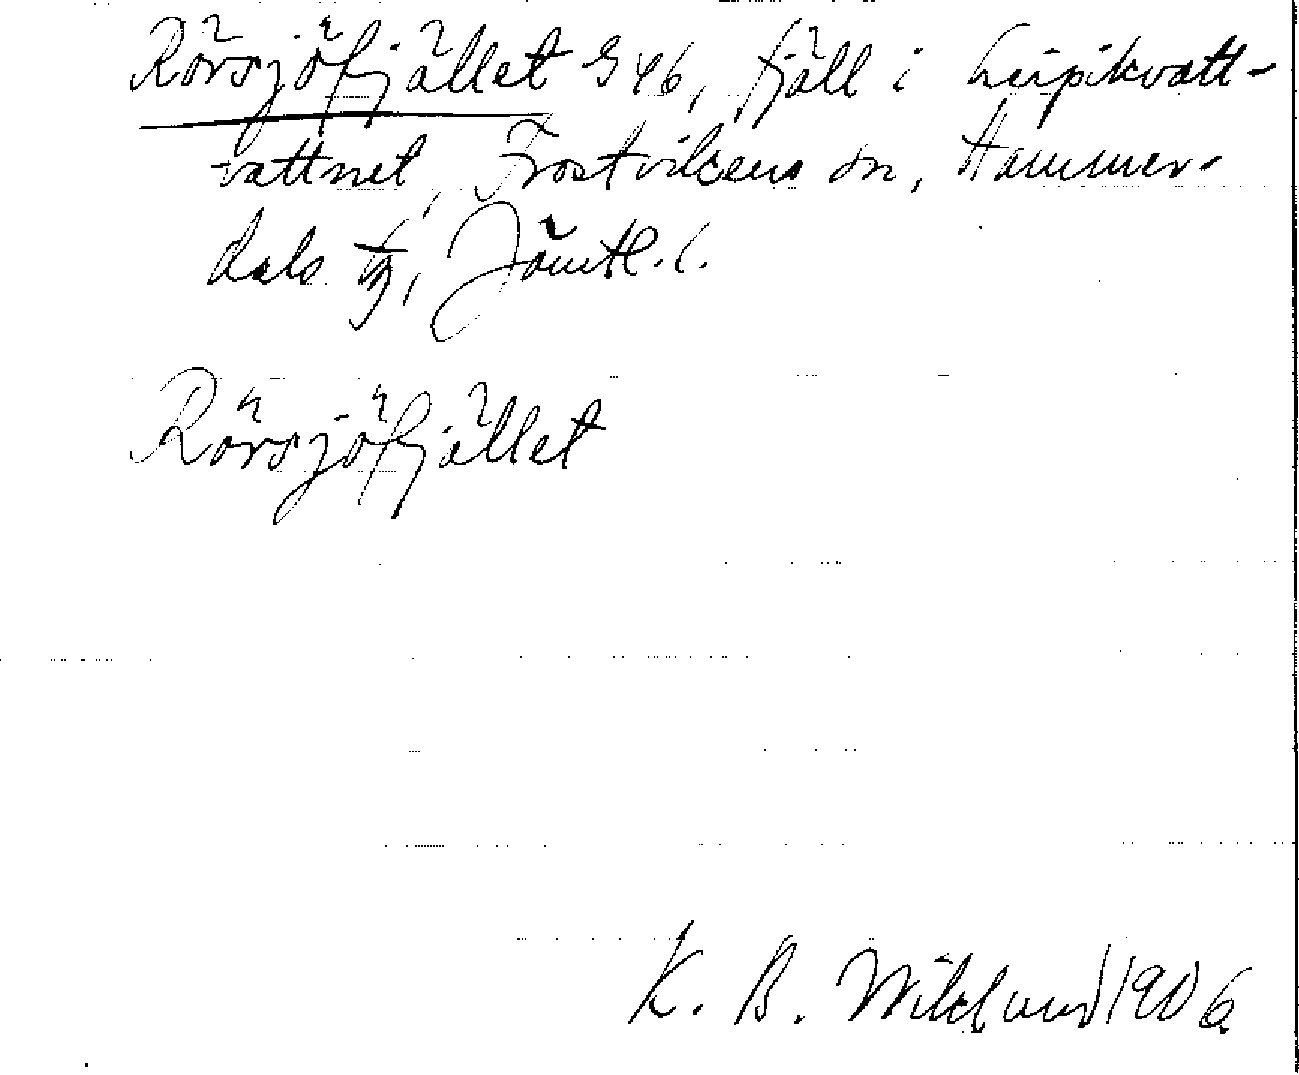 Rörsjöfjället G46, fjäll i Leipikvatt-
vattnet, Frostvikens sn, Hammer-
dals tg, Jämtl. l.
Rörsjöfjället
K. B. Wiklund 1906